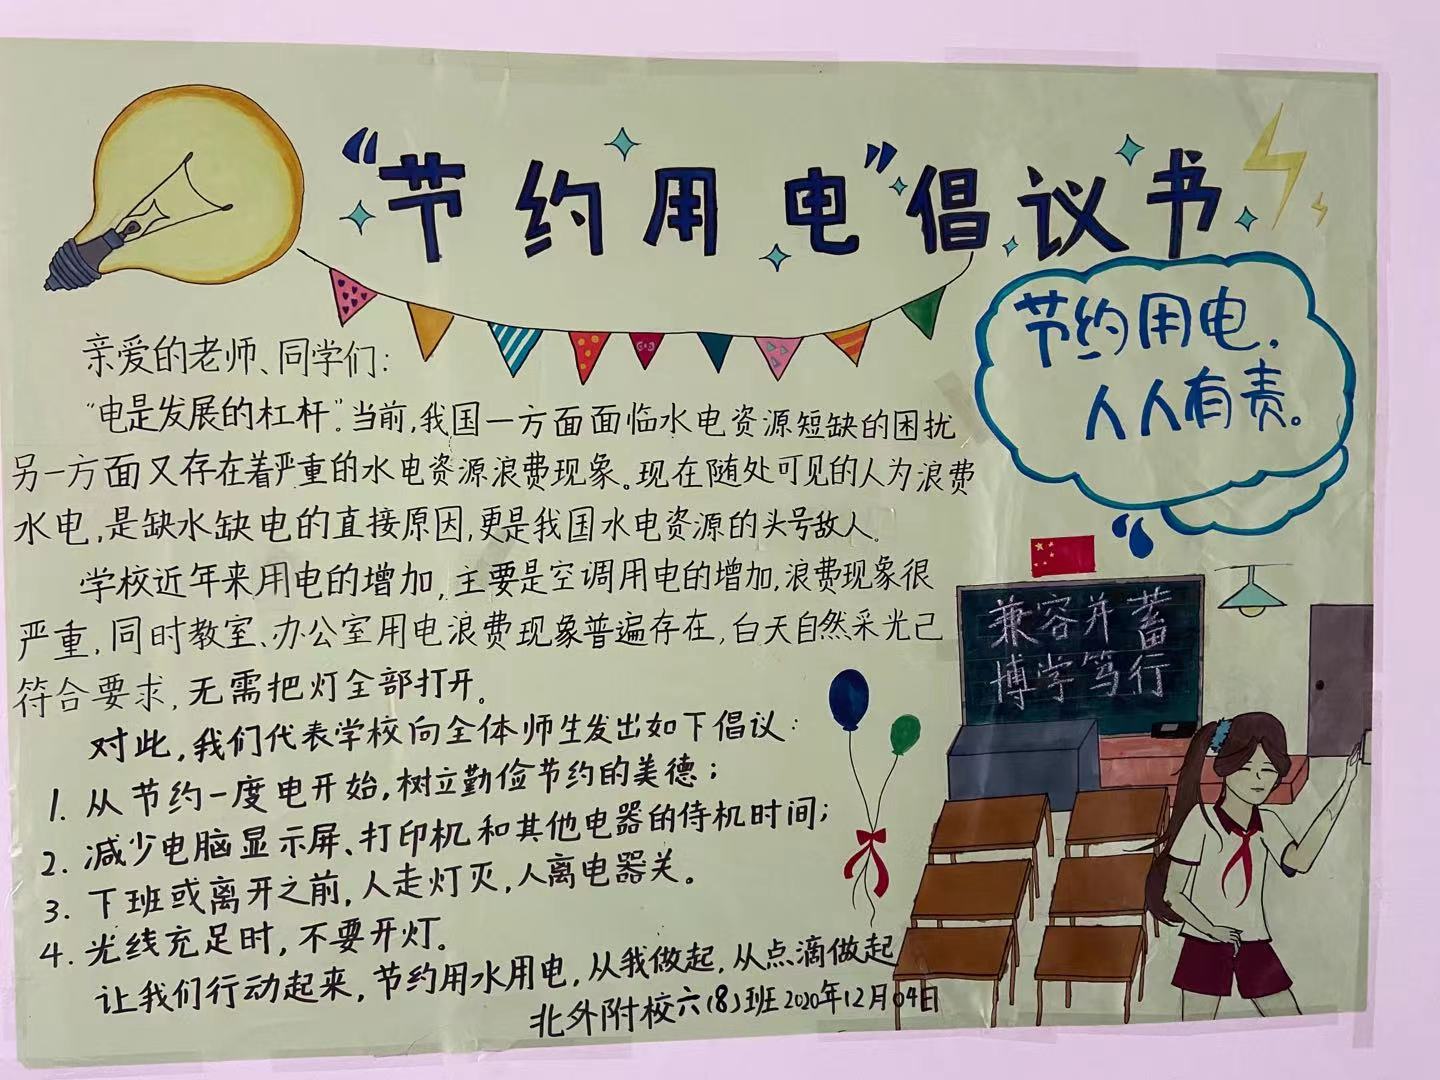 “节约用电”倡议书
节约用电.
人人有责。
亲爱的老师、同学们:
“电是发展的杠杆”.当前,我国一方面面临水电资源短缺的困扰
另一方面又存在着严重的水电资源浪费现象。现在随处可见的人为浪费
水电,是缺水缺电的直接原因,更是我国水电资源的头号敌人.
学校近年来用电的增加,主要是空调用电的增加,浪费现象很
严重,同时教室、办公室用电浪费现象普遍存在,白天自然采光已
符合要求,无需把灯全部打开。
对此,我们代表学校向全体师生发出如下倡议:
1. 从节约一度电开始,树立勤俭节约的美德;
2. 减少电脑显示屏、打印机和其他电器的待机时间;
3. 下班或离开之前,人走灯灭,人离电器关。
4. 光线充足时,不要开灯。
让我们行动起来,节约用水用电,从我做起,从点滴做起
北外附校六(8)班2020年12月04日
兼容并蓄
博学笃行